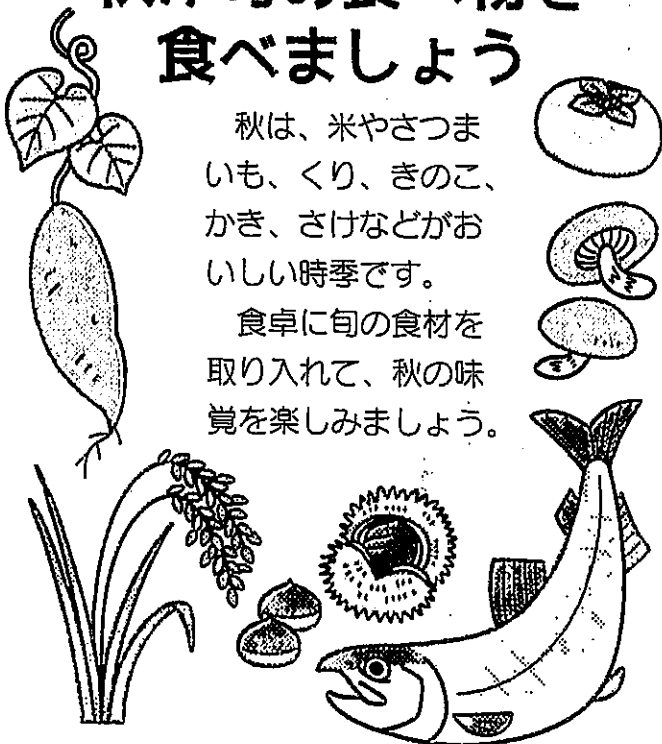 食べましょう
秋は、米やさつま
いも、くり、きのこ、
かき、さけなどがお
いしい時季です。
食卓に旬の食材を
取り入れて、秋の味
覚を楽しみましょう。